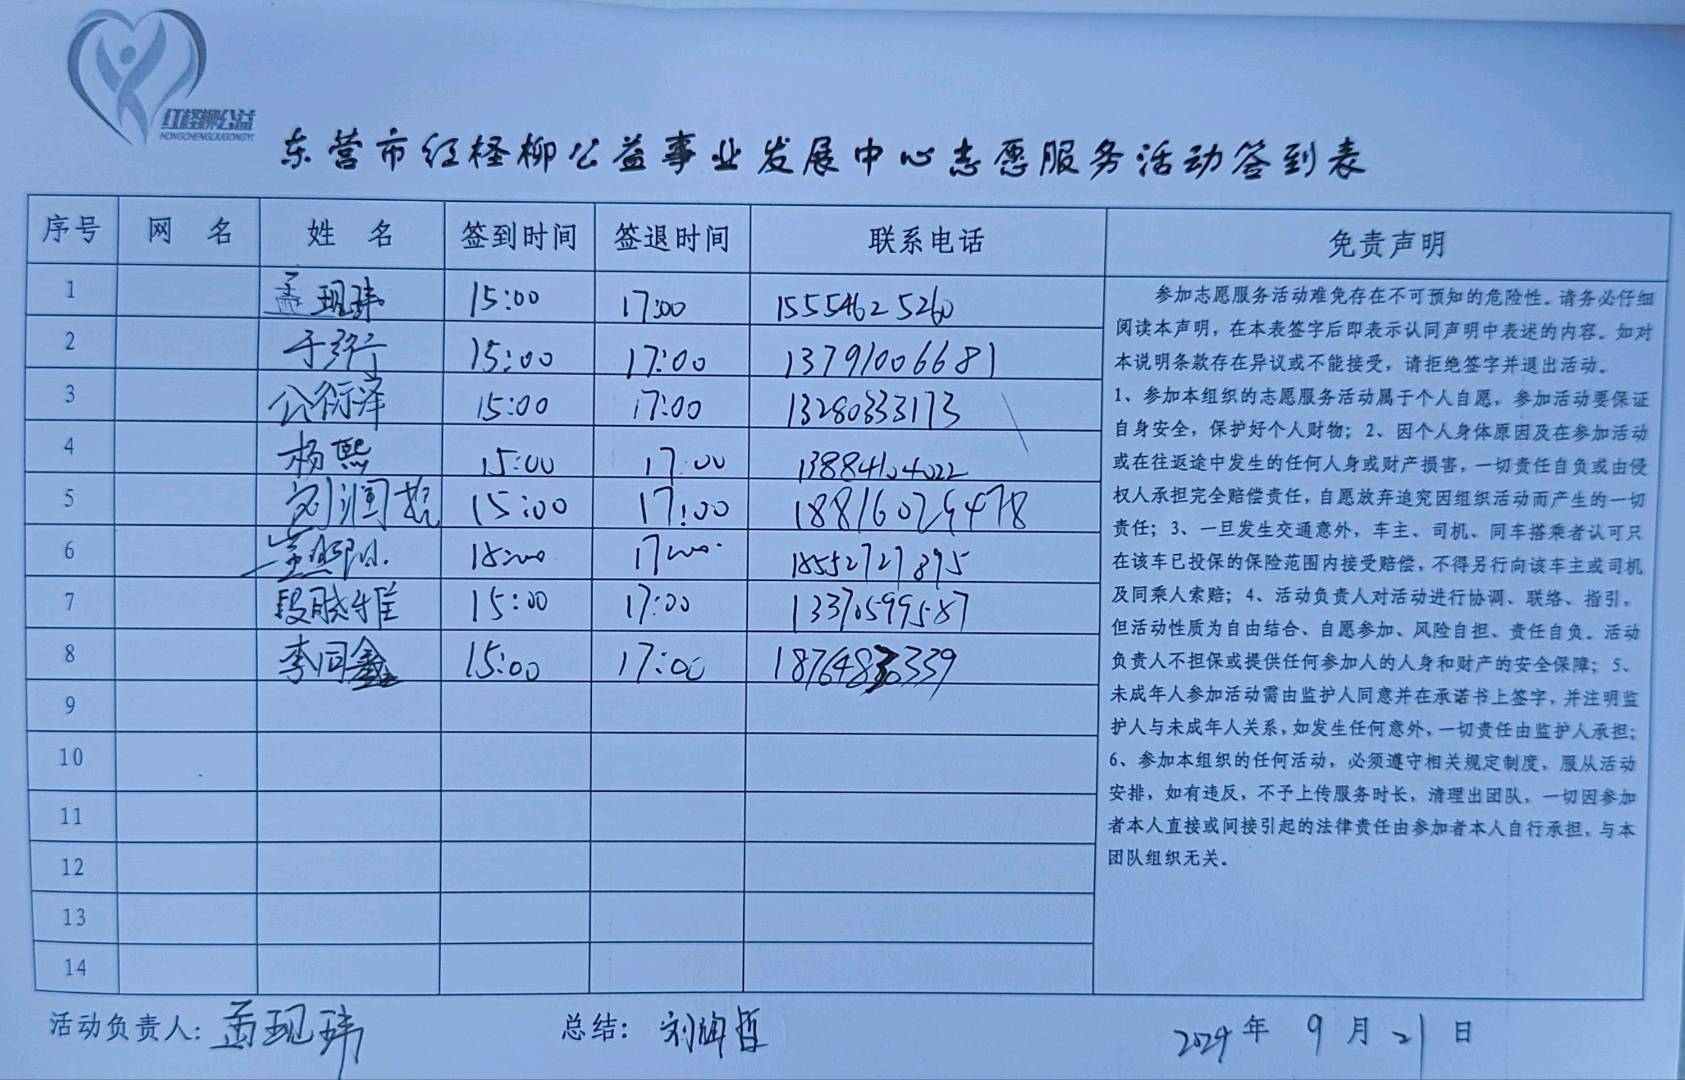 红柽柳公益
HONGCHENGLIUGONGYI
东营市红柽柳公益事业发展中心志愿服务活动签到表
序号 网 名 姓 名 签到时间 签退时间 联系电话 免责声明
1 孟现玮 15:00 17:00 15554625260
2 于 15:00 17:00 13791006681
3 公衍泽 15:00 17:00 13280333173
4 杨熙 15:00 17:00 13884104022
5 刘润 15:00 17:00
6 17:00 18552727895
7 段晓雅 15:00 17:00 13370599587
8 李同鑫 15:00 17:00
9
10
11
12
13
14
参加志愿服务活动难免存在不可预知的危险性。请务必仔细
阅读本声明，在本表签字后即表示认同声明中表述的内容。如对
本说明条款存在异议或不能接受，请拒绝签字并退出活动。
1、参加本组织的志愿服务活动属于个人自愿，参加活动要保证
自身安全，保护好个人财物；2、因个人身体原因及在参加活动
或在往返途中发生的任何人身或财产损害，一切责任自负或由侵
权人承担完全赔偿责任，自愿放弃追究因组织活动而产生的一切
责任；3、一旦发生交通意外，车主、司机、同车搭乘者认可只
在该车已投保的保险范围内接受赔偿，不得另行向该车主或司机
及同乘人索赔；4、活动负责人对活动进行协调、联络、指引，
但活动性质为自由结合、自愿参加、风险自担、责任自负。活动
负责人不担保或提供任何参加人的人身和财产的安全保障；5、
未成年人参加活动需由监护人同意并在承诺书上签字，并注明监
护人与未成年人关系，如发生任何意外，一切责任由监护人承担；
6、参加本组织的任何活动，必须遵守相关规定制度，服从活动
安排，如有违反，不予上传服务时长，清理出团队，一切因参加
者本人直接或间接引起的法律责任由参加者本人自行承担，与本
团队组织无关。
活动负责人：孟现玮 总结：刘 哲 2024年 9月21日